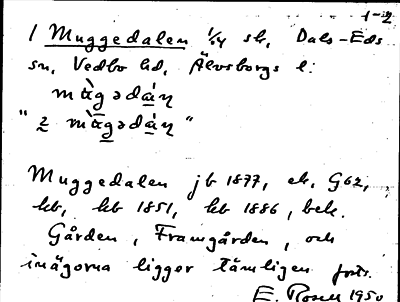 1-2
1 Muggedalen 1/4 sk, Dals-Eds
sn, Vedbo hd, Älvsborgs l:
mùgədáṇ
"2 mùgədáṇ"
Muggedalen jb 1877, ek, G62,
kb, kb 1851, kb 1886, bek.
Gården, Framgården, och
inägorna ligger tämligen forts.
E. Rosell 1950